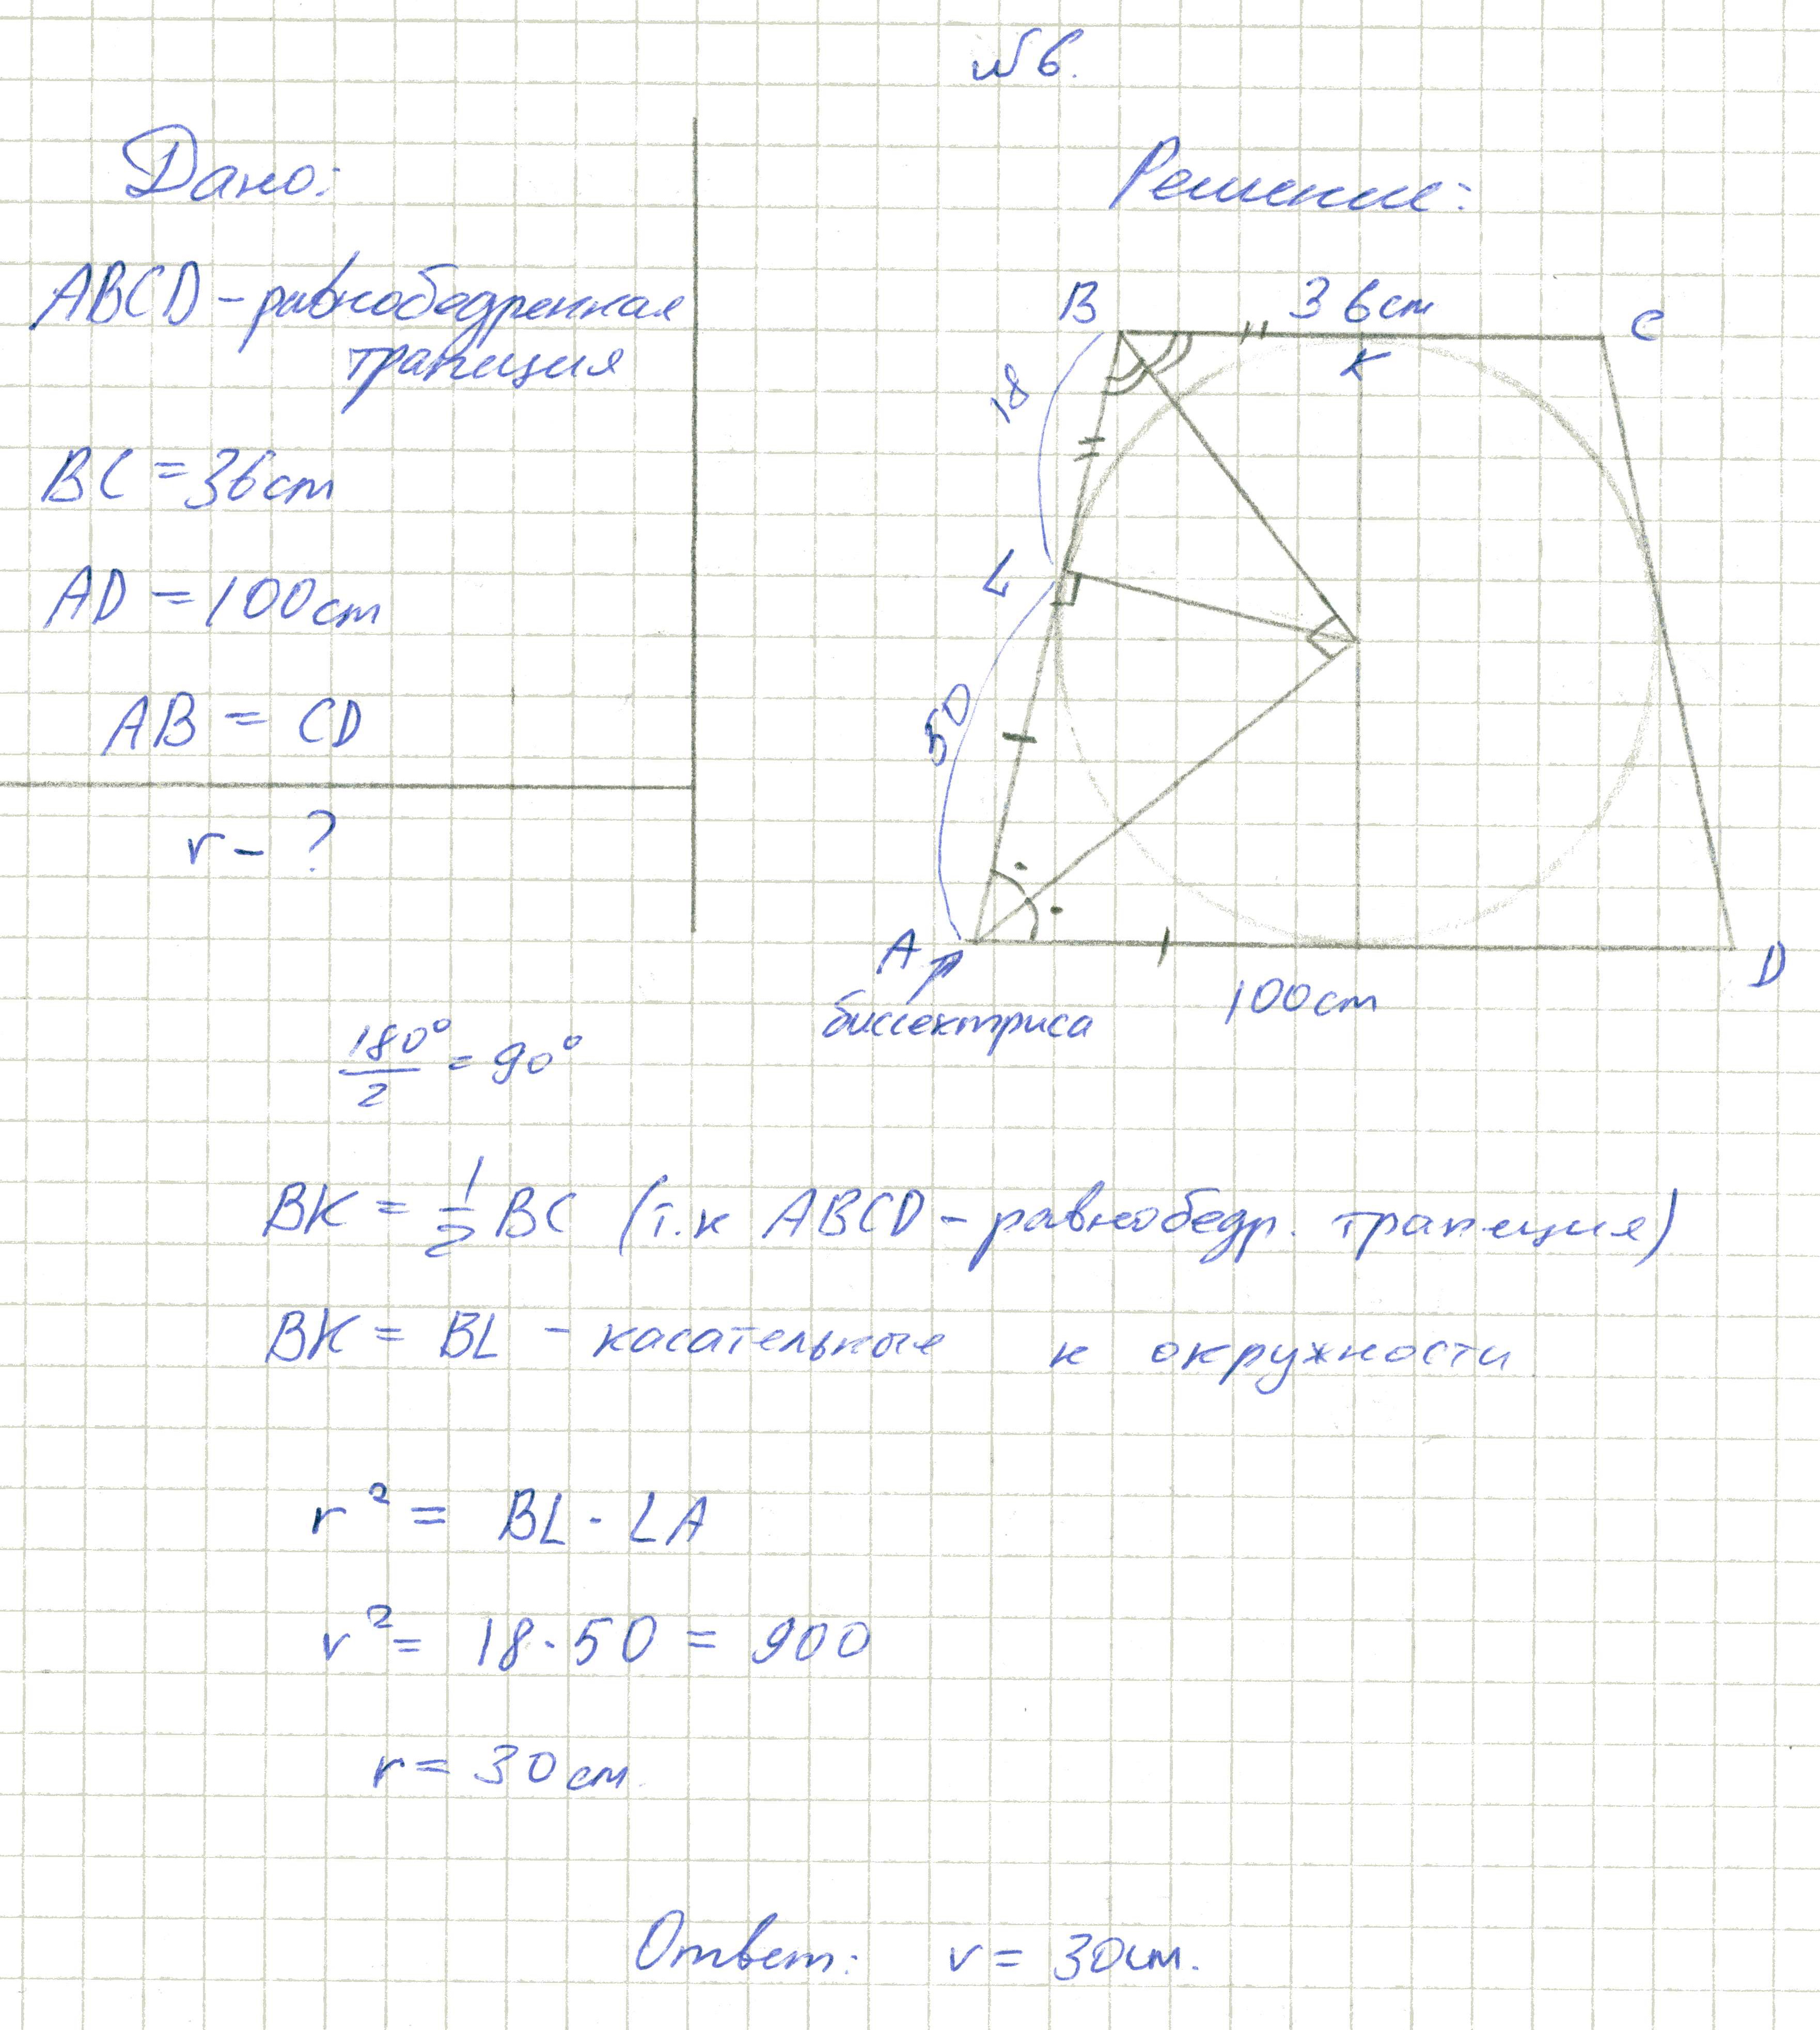 №6.
Дано:
ABCD - равнобедренная
трапеция
BC = 36cm
AD = 100cm
AB = CD
r - ?
Решение:
B 36cm C
K
18
L
50
A D
биссектриса
100cm
180°/2 = 90°
BK = 1/2 BC (т.к ABCD - равнобедр. трапеция)
BK = BL - касательные к окружности
r² = BL · LA
r² = 18 · 50 = 900
r = 30 см.
Ответ: r = 30см.